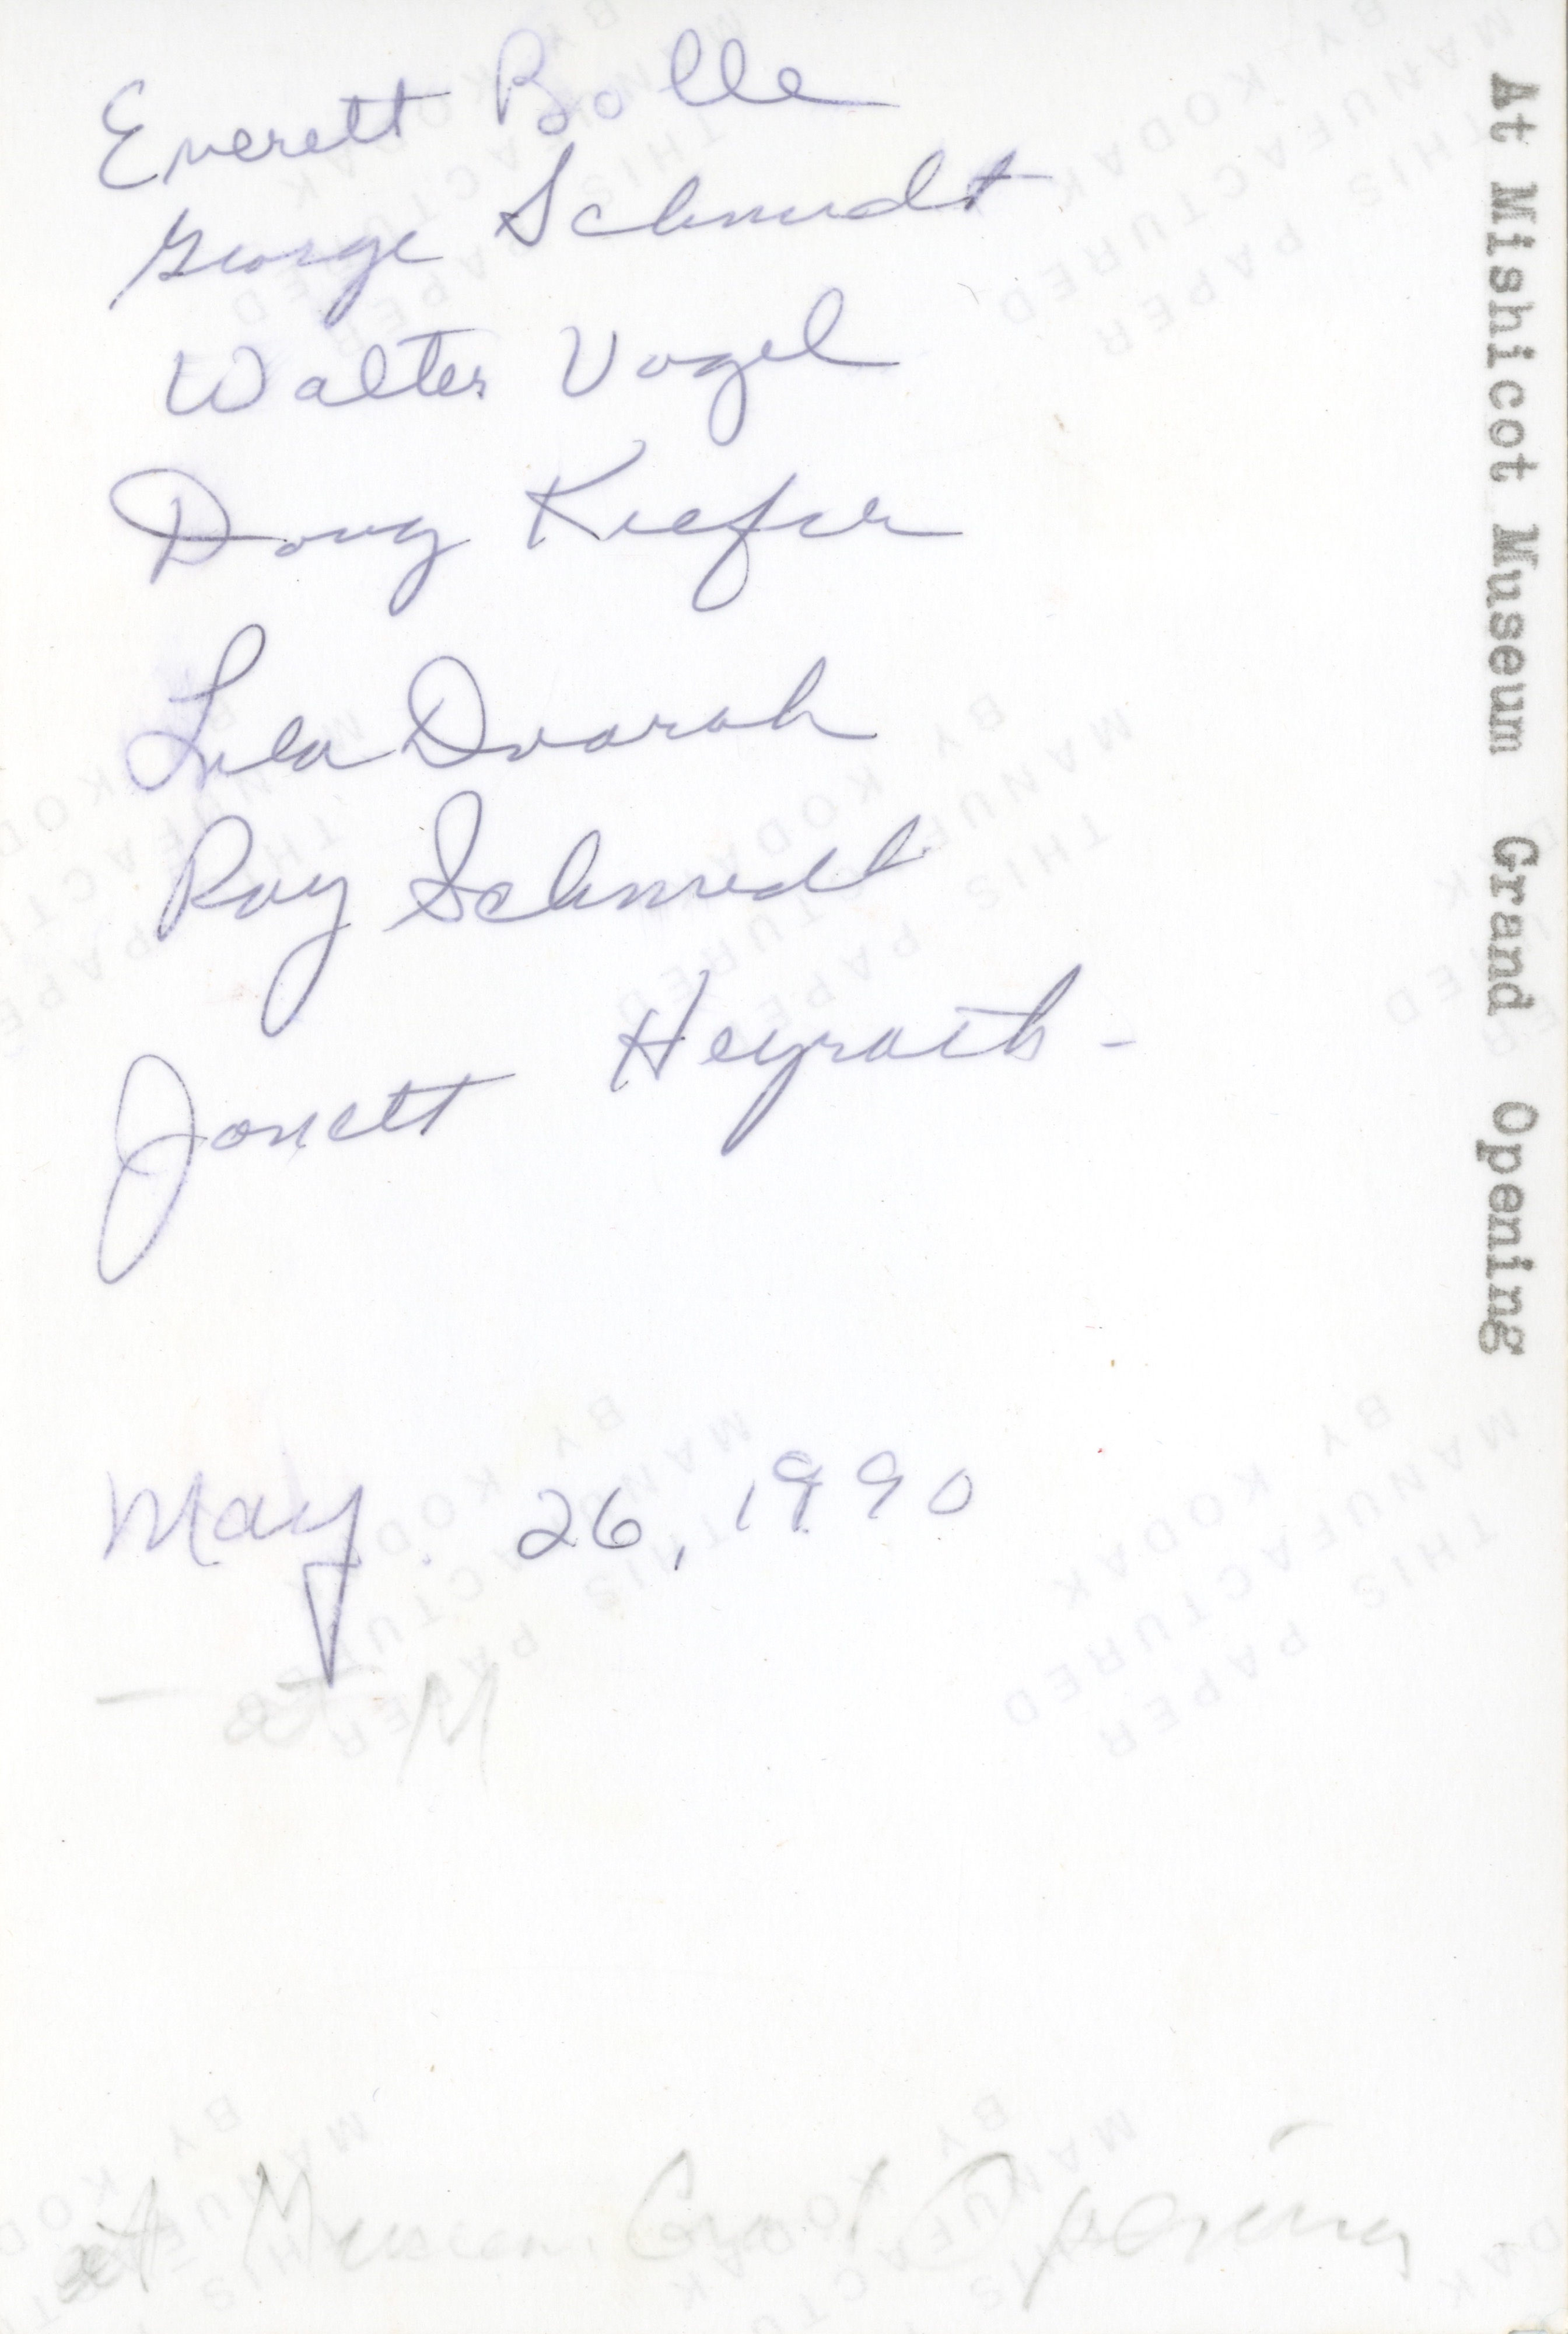 Everett Bolle
George Schmidt
Walter Vogel
Doug Kiefer
Lila Dvorak
Ray Schmidt
Janett Heyroth -
May 26, 1990
M
At Museum Grand Opening
At Mishicot Museum Grand Opening
THIS PAPER
MANUFACTURED
BY KODAK